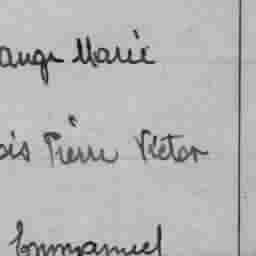 ange Marie
ois Pierre Victor
Emmanuel